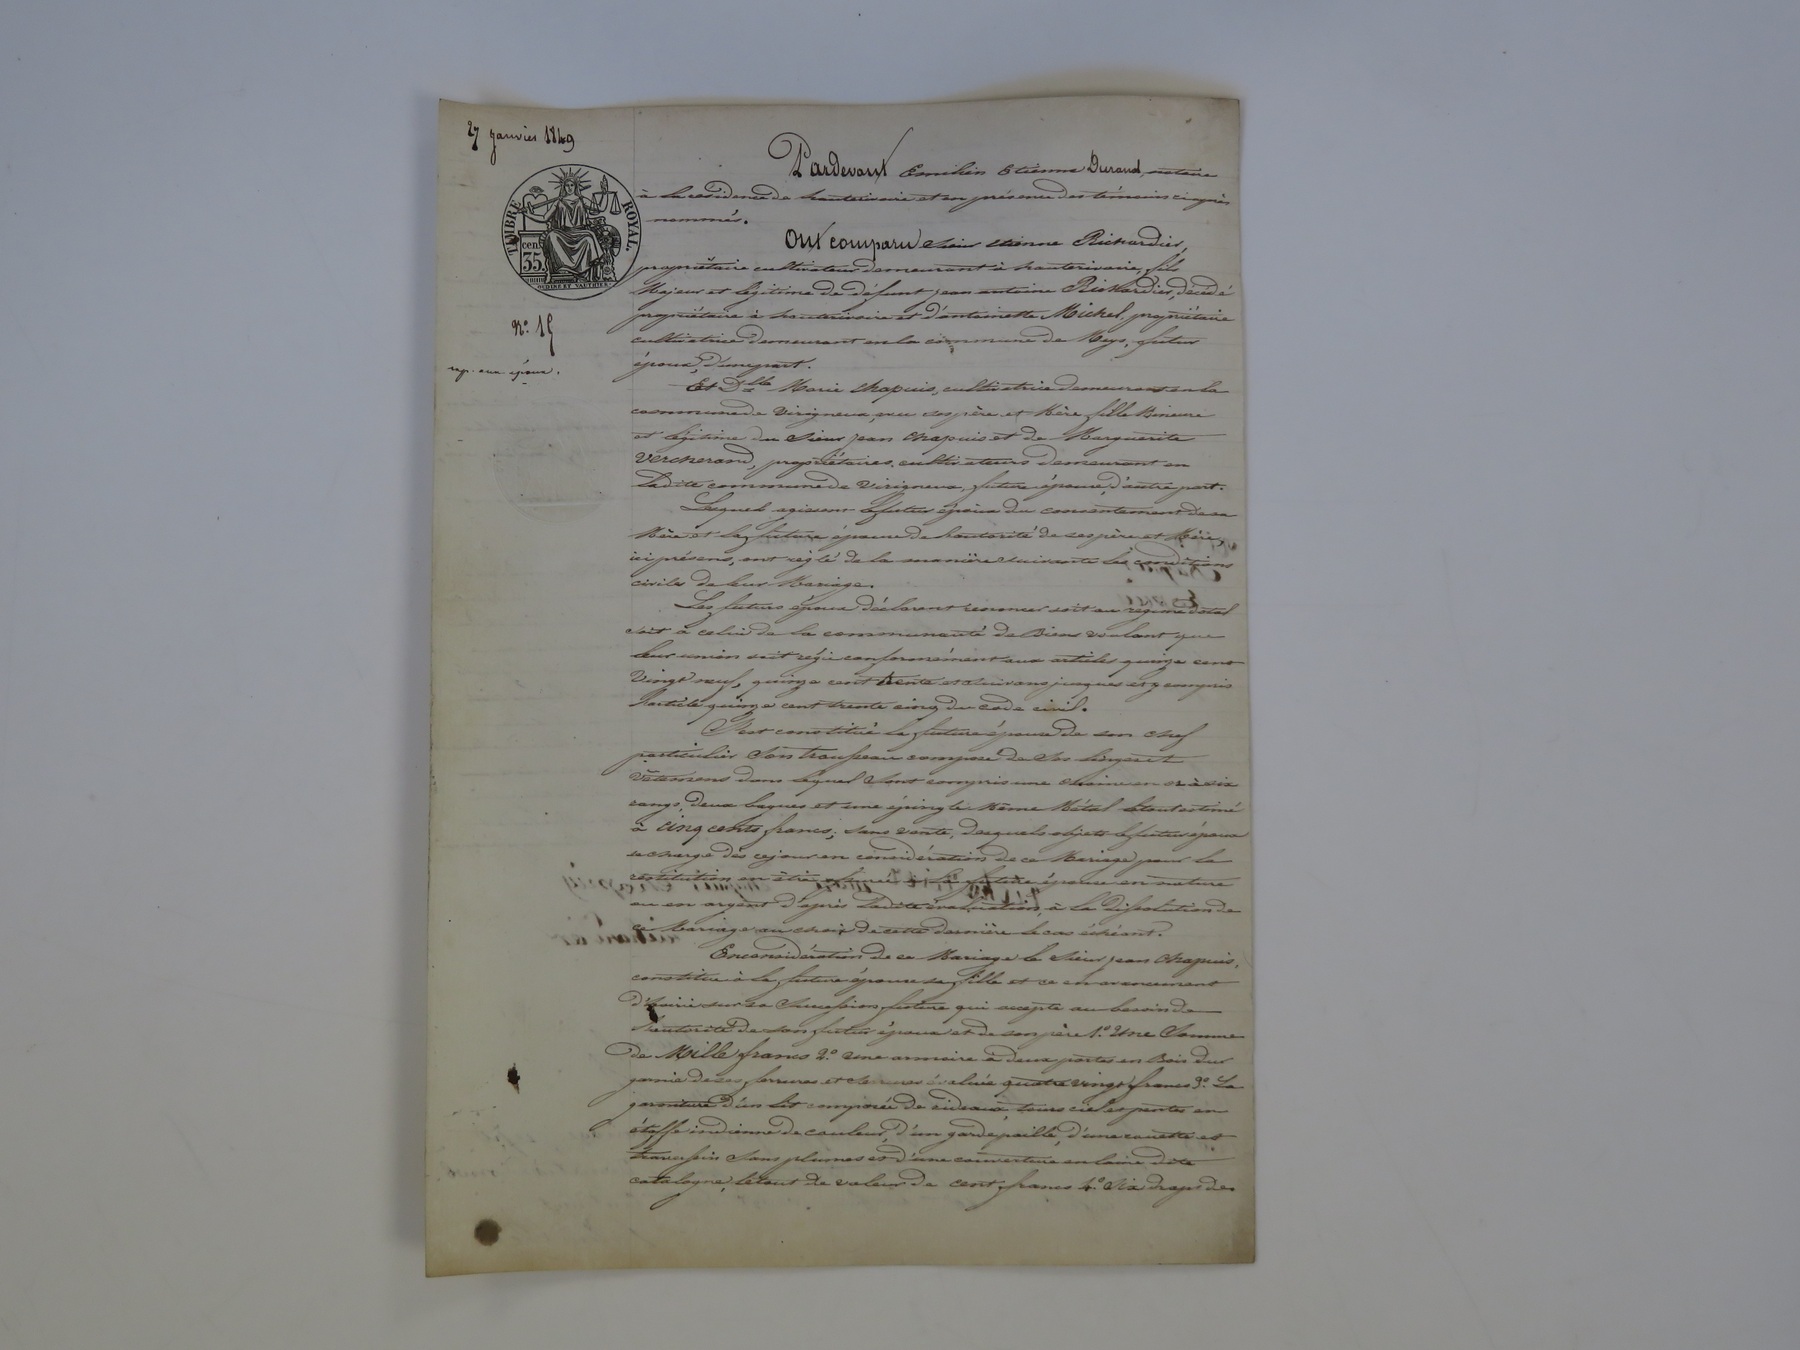 27 janvier 1849
TIMBRE ROYAL.
cen.
35.
OUDINÉ ET VAUTHIER
N.º 15
exp. aux époux.
Pardevant Emilien Etienne Durand, notaire
à la résidence de hauterivoire et en présence des témoins ci après
nommés.
Ont comparu Sieur etienne Richardier,
propriétaire cultivateur demeurant à hauterivoire, fils
Majeur et légitime de défunt jean antoine Richardier, décédé
propriétaire à hauterivoire et d'antoinette Michel, propriétaire
cultivatrice demeurant en la commune de Meys, futur
époux, d'une part.
Et Dlle Marie chapuis, cultivatrice demeurant en la
commune de Virigneux, avec ses père et Mère, fille Mineure
et légitime du Sieur jean chapuis et de Marguerite
Vercherand, propriétaires, cultivateurs demeurant en
Ladite commune de Virigneux, future épouse, d'autre part.
Lesquels agissant le futur époux du consentement de sa
Mère et la future épouse de l'autorité de ses père et Mère,
ici présens, ont réglé de la manière suivante les conditions
civiles de leur Mariage.
Les futurs époux déclarent renoncer soit au régime dotal
soit à celui de la communauté de Biens voulant que
leur union soit régie conformément aux articles quinze cent
Vingt neuf, quinze cent trente et suivans jusques et y compris
l'article quinze cent trente cinq du code civil.
S'est constitué la future épouse de son chef
particulier Son trousseau composé de Ses linges et
Vêtemens dans lequel Sont compris une chaine en or à six
rangs, deux bagues et une épingle Même Métal le tout estimé
à cinq cents francs, Sans vente, desquels objets le futur époux
se charge dès ce jour en considération de ce Mariage pour la
restitution en être à la future épouse en nature
ou en argent d'après Ladite évaluation, à la dissolution de
ce Mariage au choix de cette dernière le cas échéant.
En considération de ce Mariage le Sieur jean chapuis,
constitue à la future épouse sa fille et ce en avancement
d'hoirie sur sa Succession future qui accepte au besoin de
l'autorité de son futur époux et de son père 1.º Une Somme
de Mille francs 2.º Une armoire à deux portes en Bois dur
garnie de ses ferrures et serrures évaluée quatre vingt francs 3.º La
garniture d'un lit composée de rideaux tours ciel et pentes en
étoffe indienne de couleur, d'un garde paille, d'une couette et
traversin Sans plumes et d'une couverture en laine dite
catalogne, le tout de valeur de cent francs 4.º Six draps de